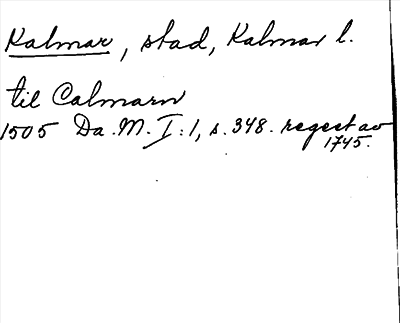 Kalmar, stad, Kalmar l.
til Calmarn
1505 Da. M. I:1, s. 348. regest av
1745.